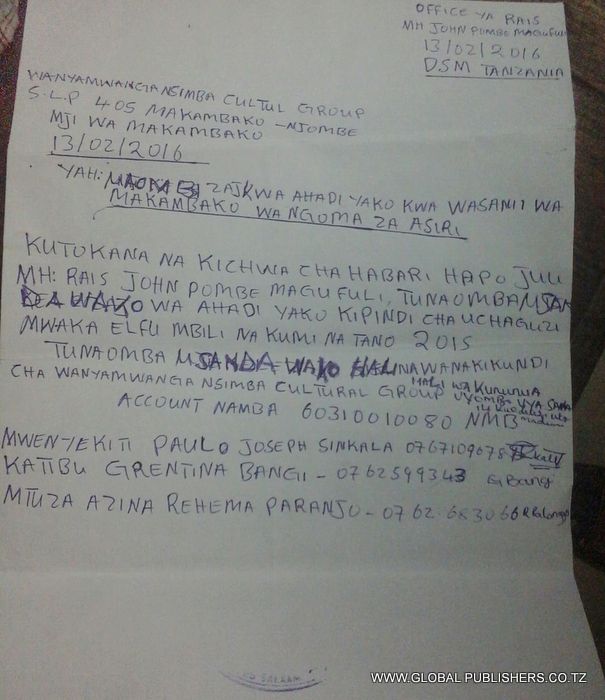 OFFICE YA RAIS
MH JOHN POMBE MAGUFULI
13/02/2016
DSM TANZANIA
WANYAMWANGANSIMBA CULTUL GROUP
S.L.P 405 MAKAMBAKO -NJOMBE
MJI WA MAKAMBAKO
13/02/2016
YAH: KWA AHADI YAKO KWA WASANII WA
MAKAMBAKO WA NGOMA ZA ASIRI
KUTOKANA NA KICHWA CHA HABARI HAPO JUU
MH: RAIS JOHN POMBE MAGUFULI, TUNAOMBA
WA AHADI YAKO KIPINDI CHA UCHAGUZI
MWAKA ELFU MBILI NA KUMI NA TANO 2015
TUNAOMBA MSAADA WAKO HALI NA WANAKIKUNDI
CHA WANYAMWANGA NSIMBA CULTURAL GROUP WA KUNUNUA
VYOMBO VYA SANAA
ACCOUNT NAMBA 60310010080 NMB
MWENYEKITI PAULO JOSEPH SINKALA 0767109678
KATIBU GRENTINA BANGI - 0762599343 GBangi
MTUZA AZINA REHEMA PARANJO - 07 62
WWW.GLOBAL PUBLISHERS.CO.TZ